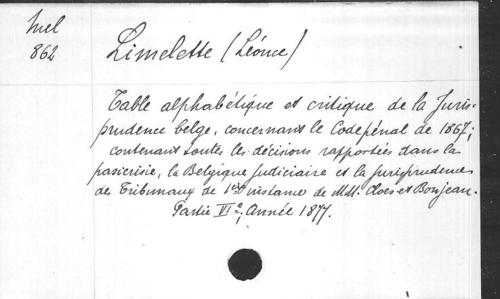 Mel
862
Limelette (Léonce)
Table alphabétique et critique de la Juris-
prudence belge, concernant le Code pénal de 1867;
contenant toutes les décisions rapportées dans la
pasicrisie, la Belgique Judiciaire et la Jurisprudence
des Tribunaux de 1ère instance de MM. Cloes et Bonjean.
Partie VIe; Année 1877.